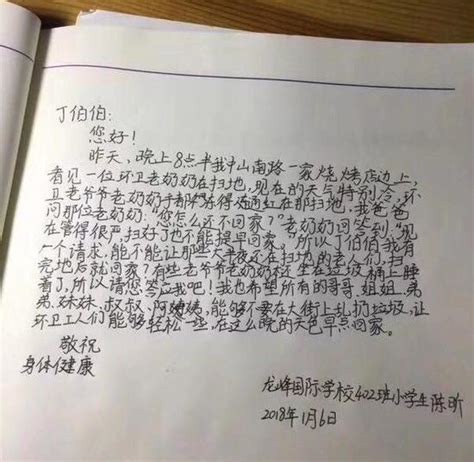 丁伯伯:
您好!
昨天,晚上8点半我中山南路一家烧烤店边上,
看见一位环卫老奶奶在扫地,现在的天气特别冷,环
卫老爷爷老奶奶手都冻得通红在那扫地,我爸爸
问那位老奶奶:“您怎么还不回家?”老奶奶回答到:“现
在管得很严扫好了也不能提早回家。”所以丁伯伯我有
一个请求,能不能让那些大半夜还在扫地的老人们,扫
完地后就回家?有些老爷爷老奶奶还坐在垃圾桶上睡
着了,所以请您答应我吧!我也希望所有的哥哥、姐姐、弟
弟、妹妹、叔叔、阿姨,能够不要在大街上乱扔垃圾,让
环卫工人们能够轻松一些,在这么晚的天色早点回家。
敬祝
身体健康
龙峰国际学校402班小学生陈昕
2018年1月6日